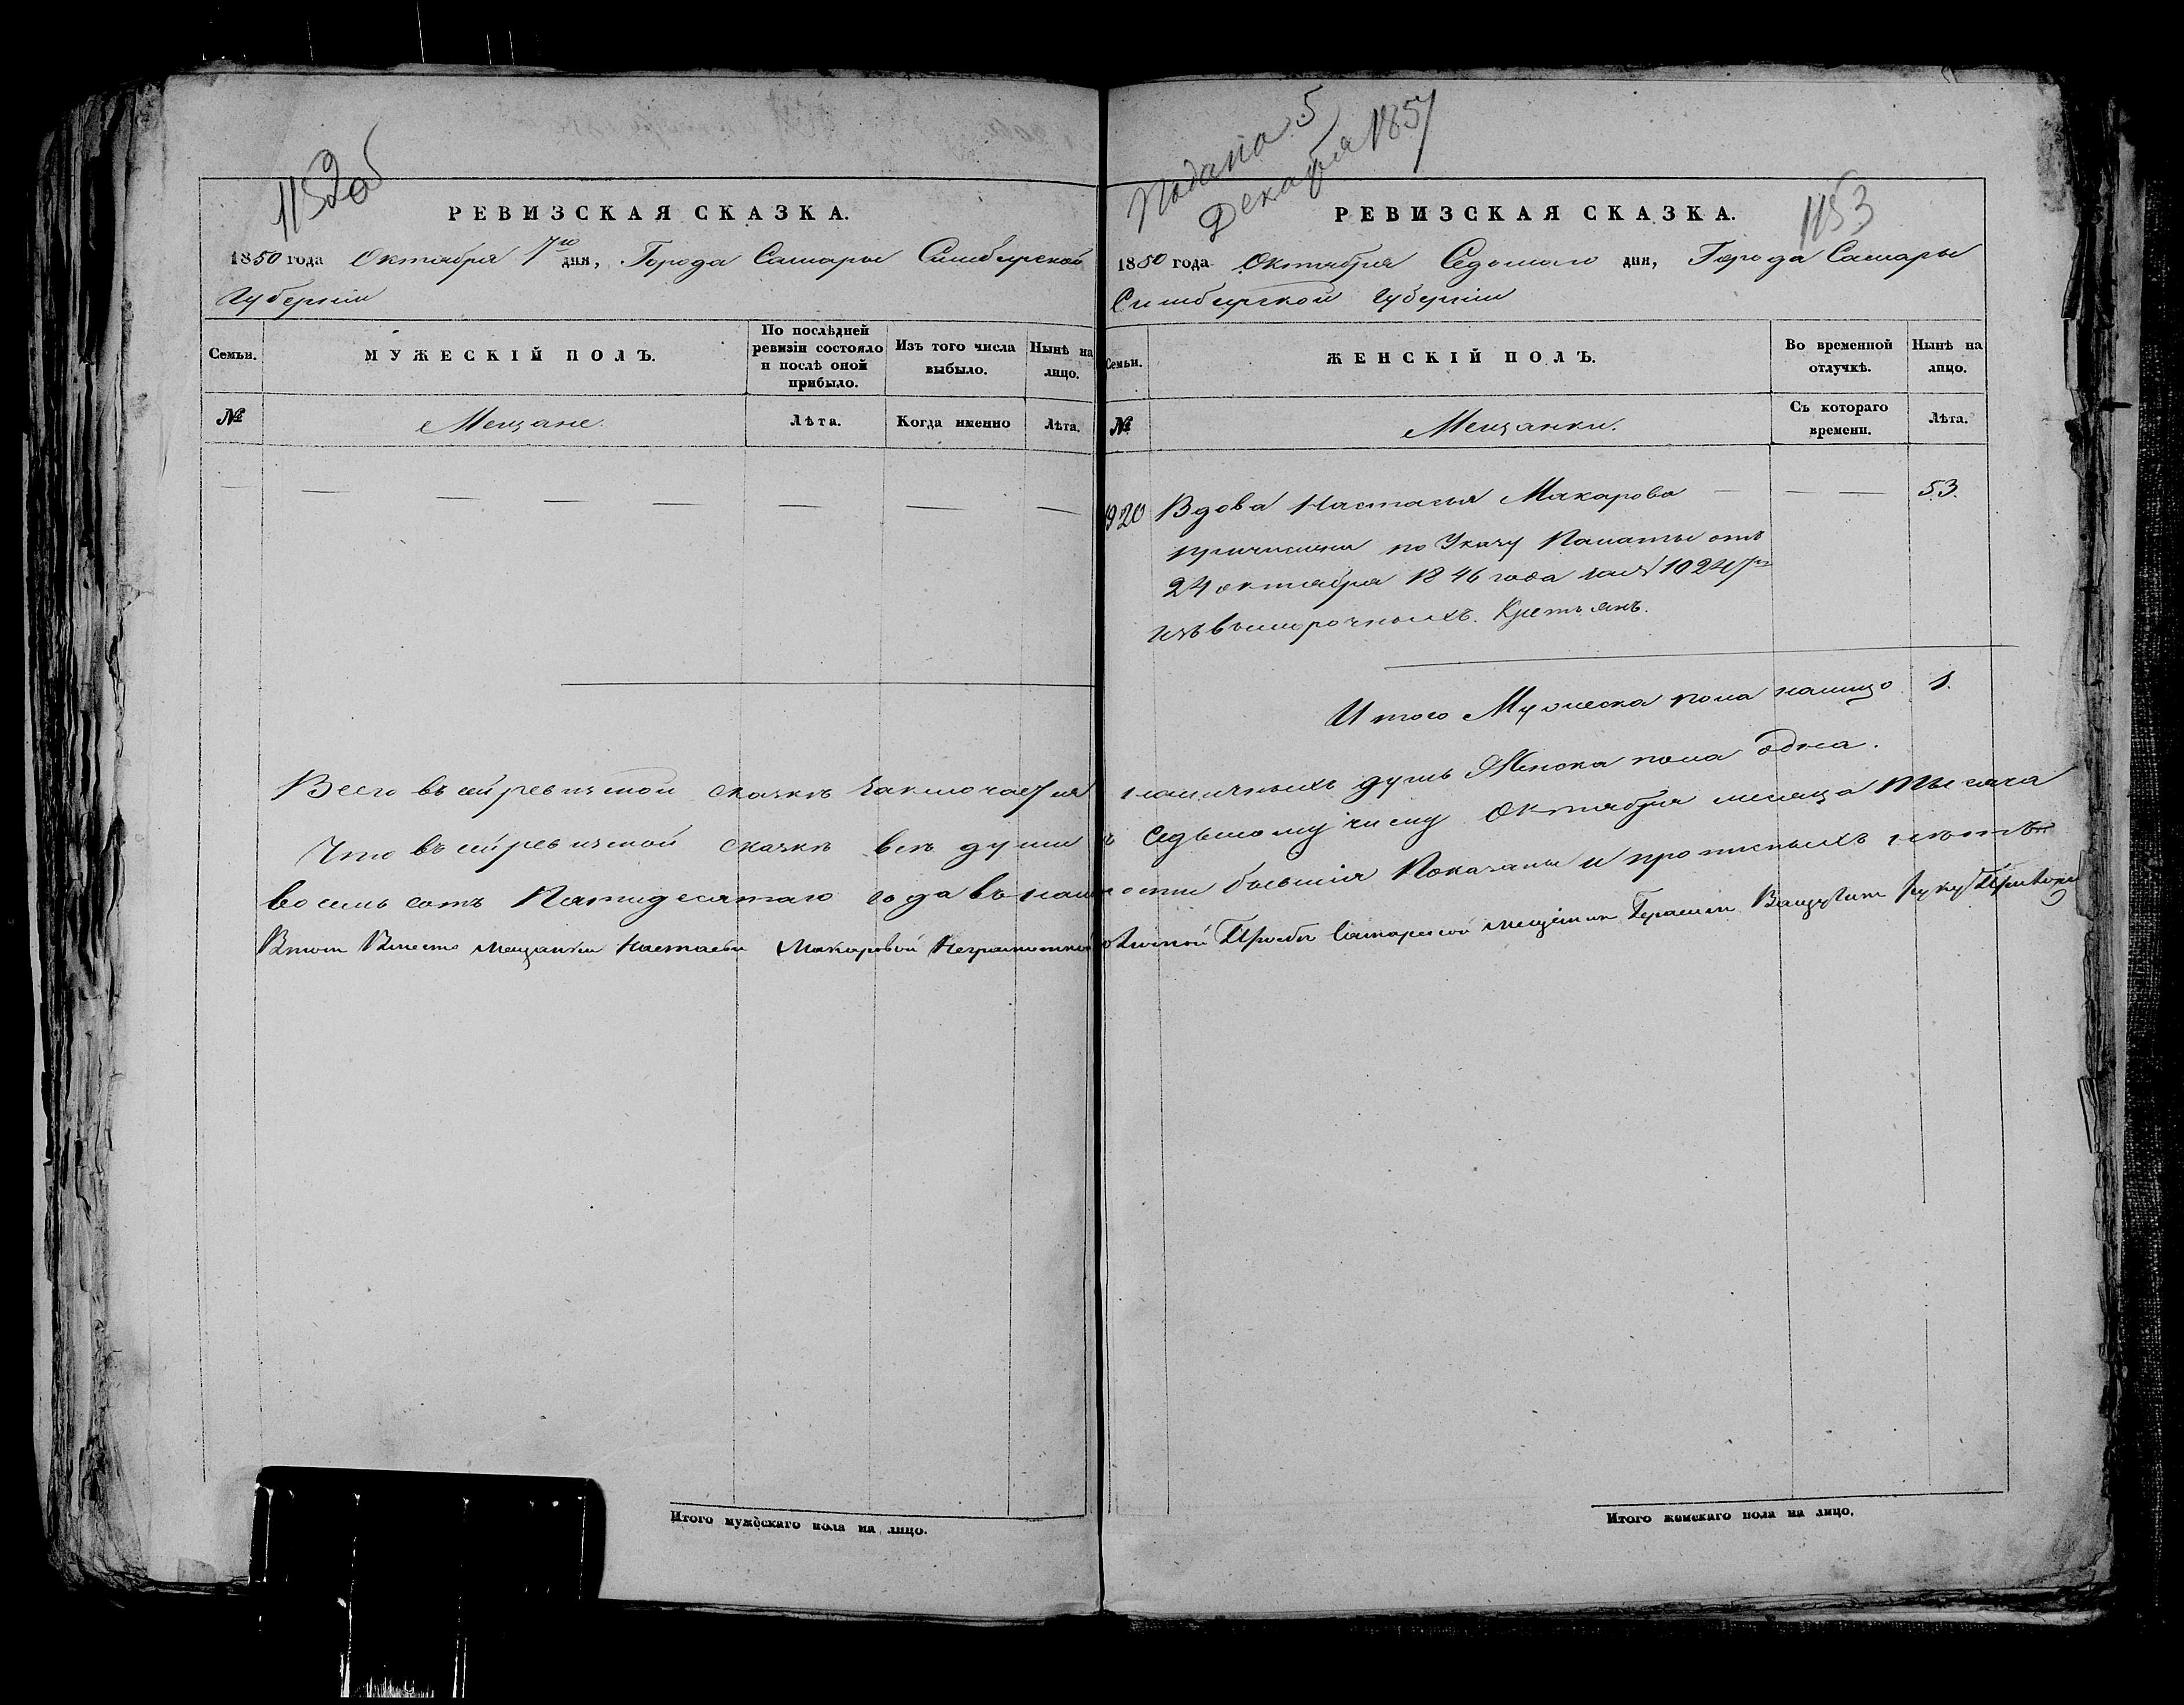 1152об
РЕВИЗСКАЯ СКАЗКА.
1850 года Октября 7го дня, Города Самары Симбирской
Губернии
Семьи.
МУЖЕСКІЙ ПОЛЪ.
По послѣдней
ревизіи состояло
и послѣ оной
прибыло.
Изъ того числа
выбыло.
Нынѣ на
лицо.
№
Мещане.
Лѣта.
Когда именно
Лѣта.
Подана 5
Декабря 1857
1153
РЕВИЗСКАЯ СКАЗКА.
1850 года Октября Седьмого дня, Города Самары
Симбирской Губерніи
Семьи.
ЖЕНСКІЙ ПОЛЪ.
Во временной
отлучкѣ.
Нынѣ на
лицо.
№
Мещанки.
Съ котораго
времени.
Лѣта.
920 Вдова Настасья Макарова — — — 53.
причислена по Указу Палаты отъ
24 октября 1846 года за № 10247м
изъ выморочныхъ Крестьянъ.
Итого Мужеска пола налицо 1.
Всего въ сей ревизской сказкѣ заключается наличныхъ душъ Женска пола одна.
Что въ сей ревизской сказкѣ всѣ души къ Седьмому числу Октября месяца тысяча
восемь сотъ Пятидесятаго года въ наличности бывшия Показаны и прописныхъ нетъ
Втом Вместо мещанки Настасьи Макаровой Неграмотной Личной Прозбе Самарской мещанин Герасим руку Приложил
Итого мужескаго пола на лицо.
Итого женскаго пола на лицо.